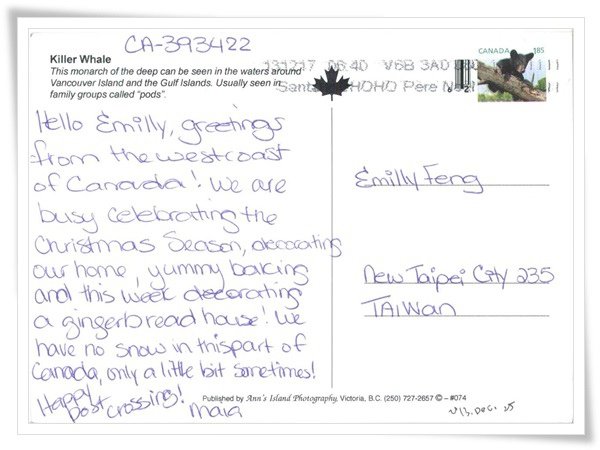 CA-393422
Killer Whale
This monarch of the deep can be seen in the waters around
Vancouver Island and the Gulf Islands. Usually seen in
family groups called "pods".
131217 06:40 V6B 3A0
Santa HOHO Pere No
CANADA 185
Hello Emilly, greetings
from the westcoast
of Canada! We are
busy celebrating the
Christmas Season, decorating
our home, yummy baking
and this week decorating
a gingerbread house! We
have no snow in this part of
Canada, only a little bit sometimes!
Happy
post crossing!
Maia
Emilly Feng
New Taipei City 235
TAIWAN
Published by Ann's Island Photography, Victoria, B.C. (250) 727-2657 © – #074